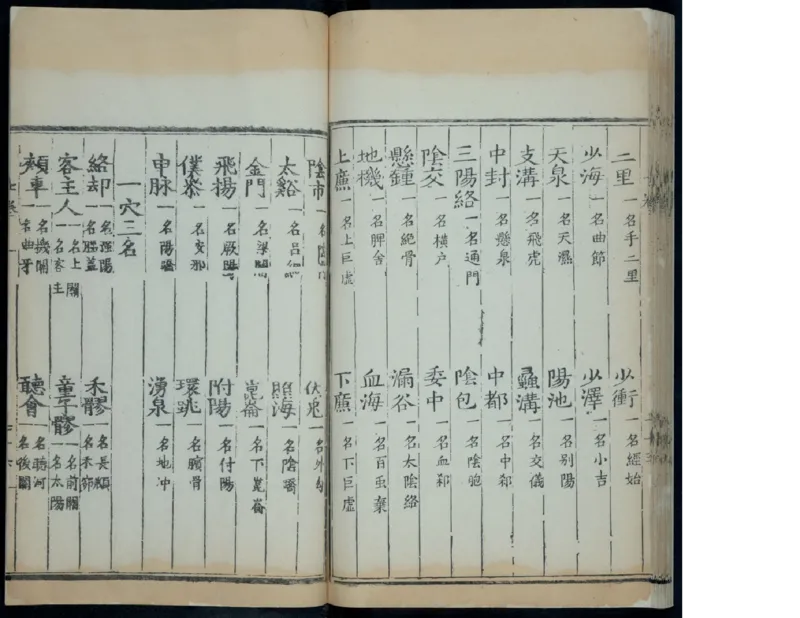 二里 一名手二里 少衝 一名經始
少海 一名曲節 少澤 一名小吉
天泉 一名天濕 陽池 一名别陽
支溝 一名飛虎 蠡溝 一名交儀
中封 一名懸泉 中都 一名中郄
三陽絡 一名通門 陰包 一名陰胞
陰交 一名橫户 委中 一名血郄
懸鐘 一名絶骨 漏谷 一名太陰絡
地機 一名脾舍 血海 一名百虫窠
上廉 一名上巨虛 下廉 一名下巨虛
陰市 一名陰 伏兎 一名外
太谿 一名吕細 照海 一名陰蹻
金門 一名梁關 崑崙 一名下崑崙
飛揚 一名厥陽 附陽 一名付陽
僕參 一名安邪 環跳 一名臏骨
申脉 一名陽蹻 湧泉 一名地冲
一穴三名
絡却 一名强陽 一名腦蓋 禾髎 一名長頻 一名禾窌
客主人 一名上關 一名客主 童子髎 一名前關 一名太陽
頰車 一名機關 一名曲牙 聽會 一名聽河 一名後關